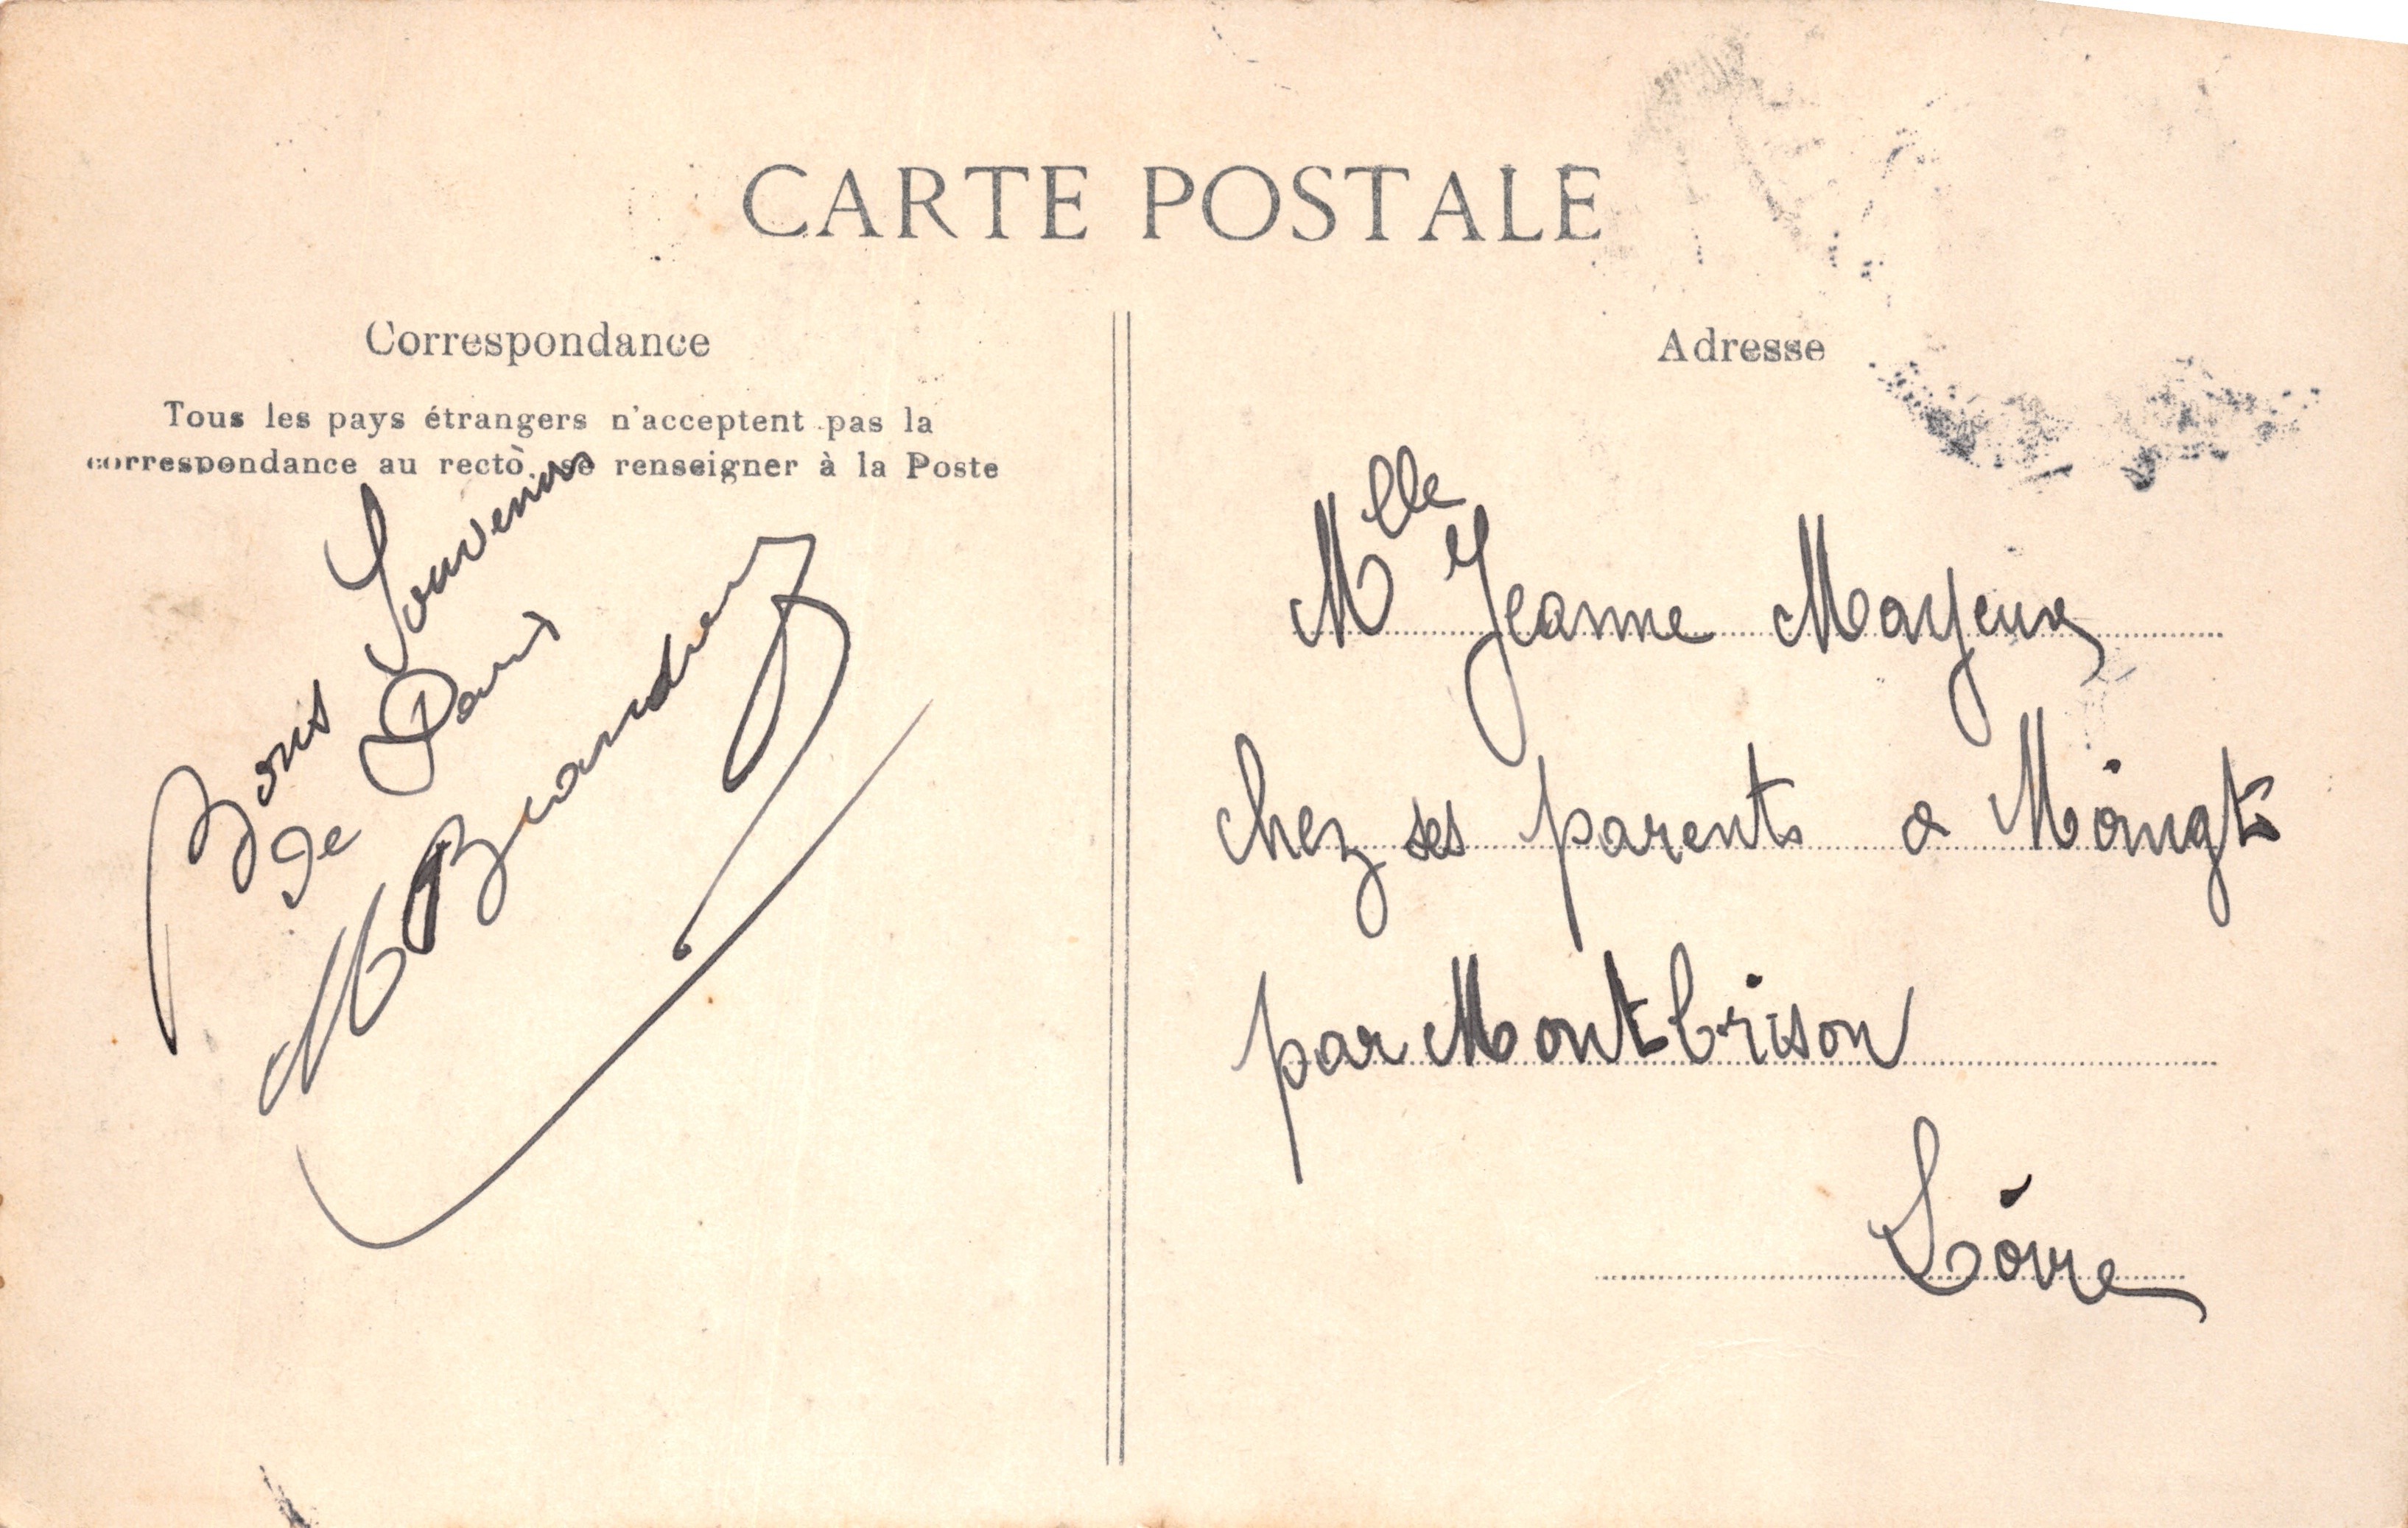 CARTE POSTALE
Correspondance
Tous les pays étrangers n'acceptent pas la
correspondance au recto, se renseigner à la Poste
Bons Souvenirs
de Paris
M
Adresse
Mlle Jeanne Mayeux
chez ses parents a Moingt
par Montbrison
Loire